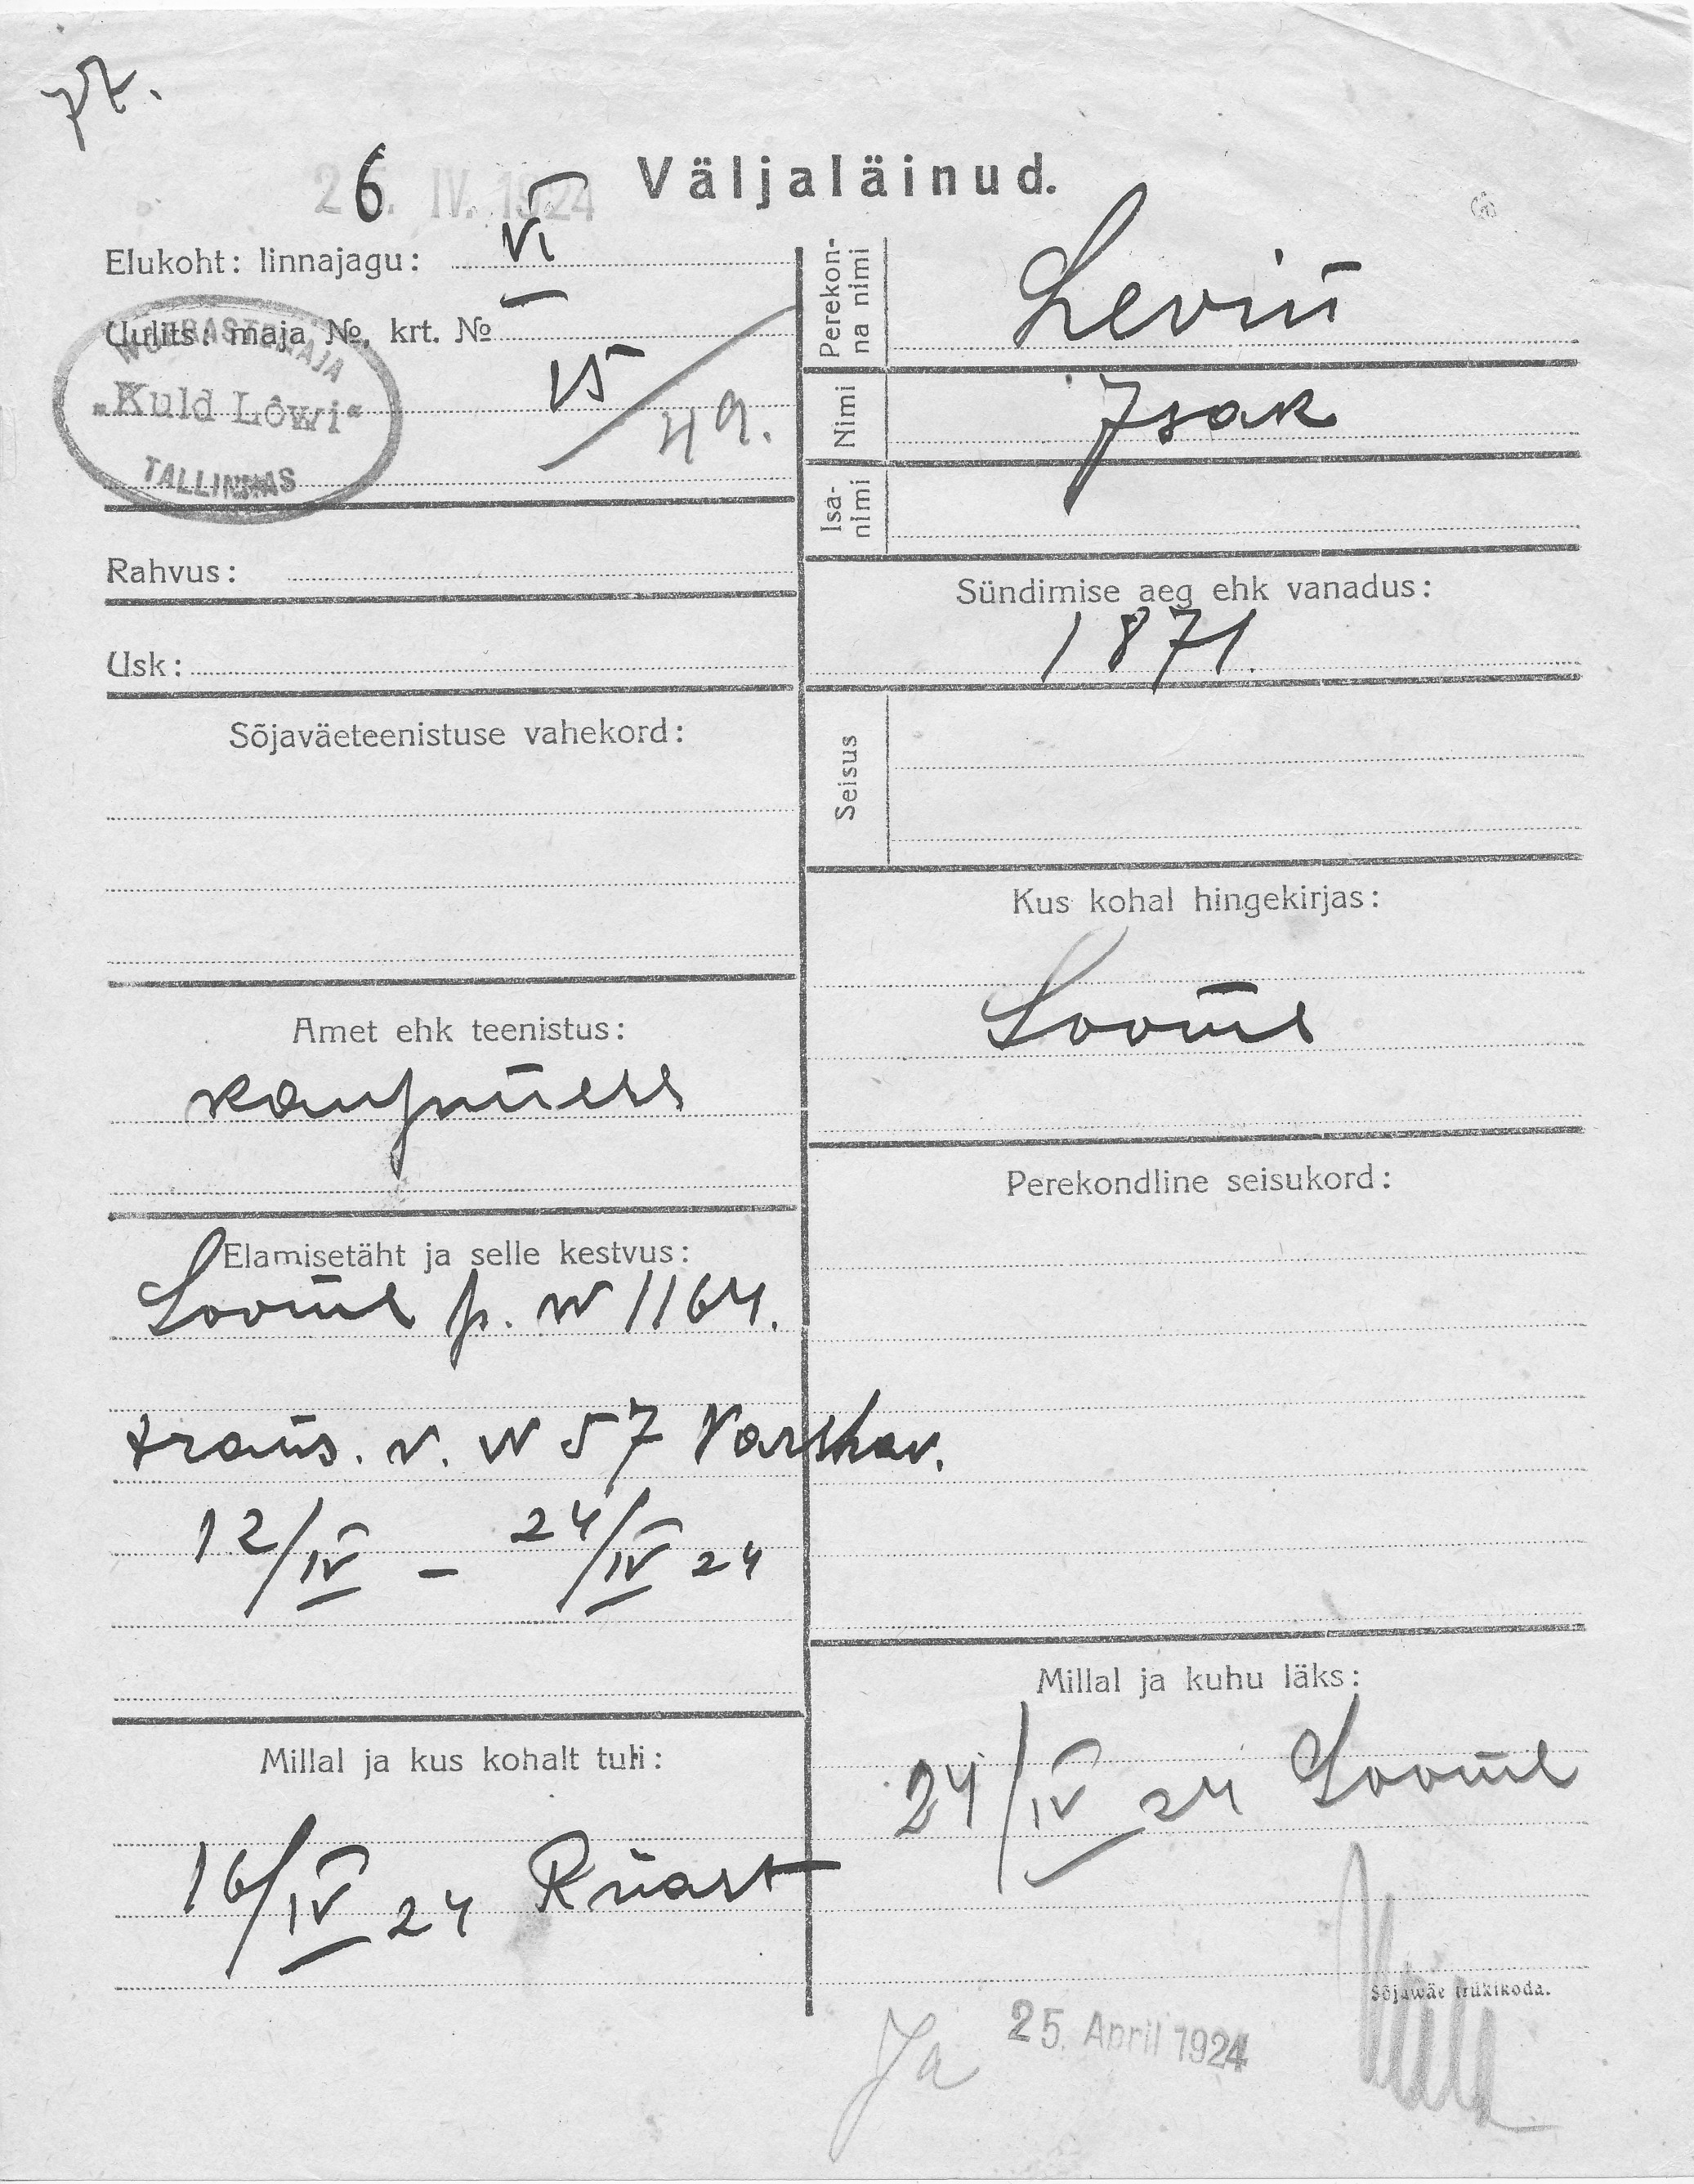 26. IV. 1924
Väljaläinud.
Elukoht: linnajagu: VI
Uulits: maja №, krt. №
15/49.
WÕÕRASTEMAJA
"Kuld Lõwi"
TALLINNAS
Rahvus:
Usk:
Sõjaväeteenistuse vahekord:
Amet ehk teenistus:
kaupmees
Elamisetäht ja selle kestvus:
Soome p. N 1164.
trans. v. N 57 Varshav.
12/IV – 24/IV 24
Millal ja kus kohalt tuli:
16/IV 24 Riiast
Perekonna nimi
Levin
Nimi
Isak
Isanimi
Sündimise aeg ehk vanadus:
1871.
Seisus
Kus kohal hingekirjas:
Soome
Perekondline seisukord:
Millal ja kuhu läks:
24/IV 24 Soome
Sõjawäe trükikoda.
Ja
25. April 1924